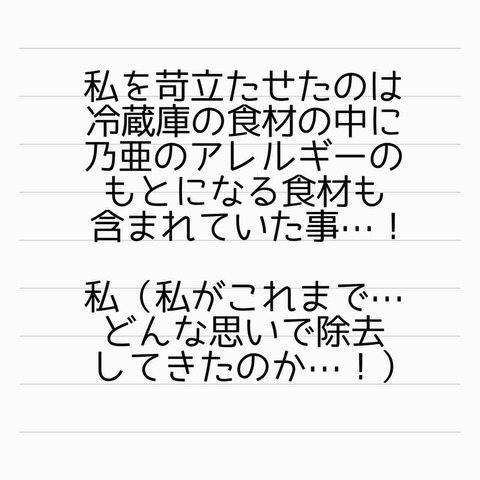 私を苛立たせたのは
冷蔵庫の食材の中に
乃亜のアレルギーの
もとになる食材も
含まれていた事…！
私（私がこれまで…
どんな思いで除去
してきたのか…！）